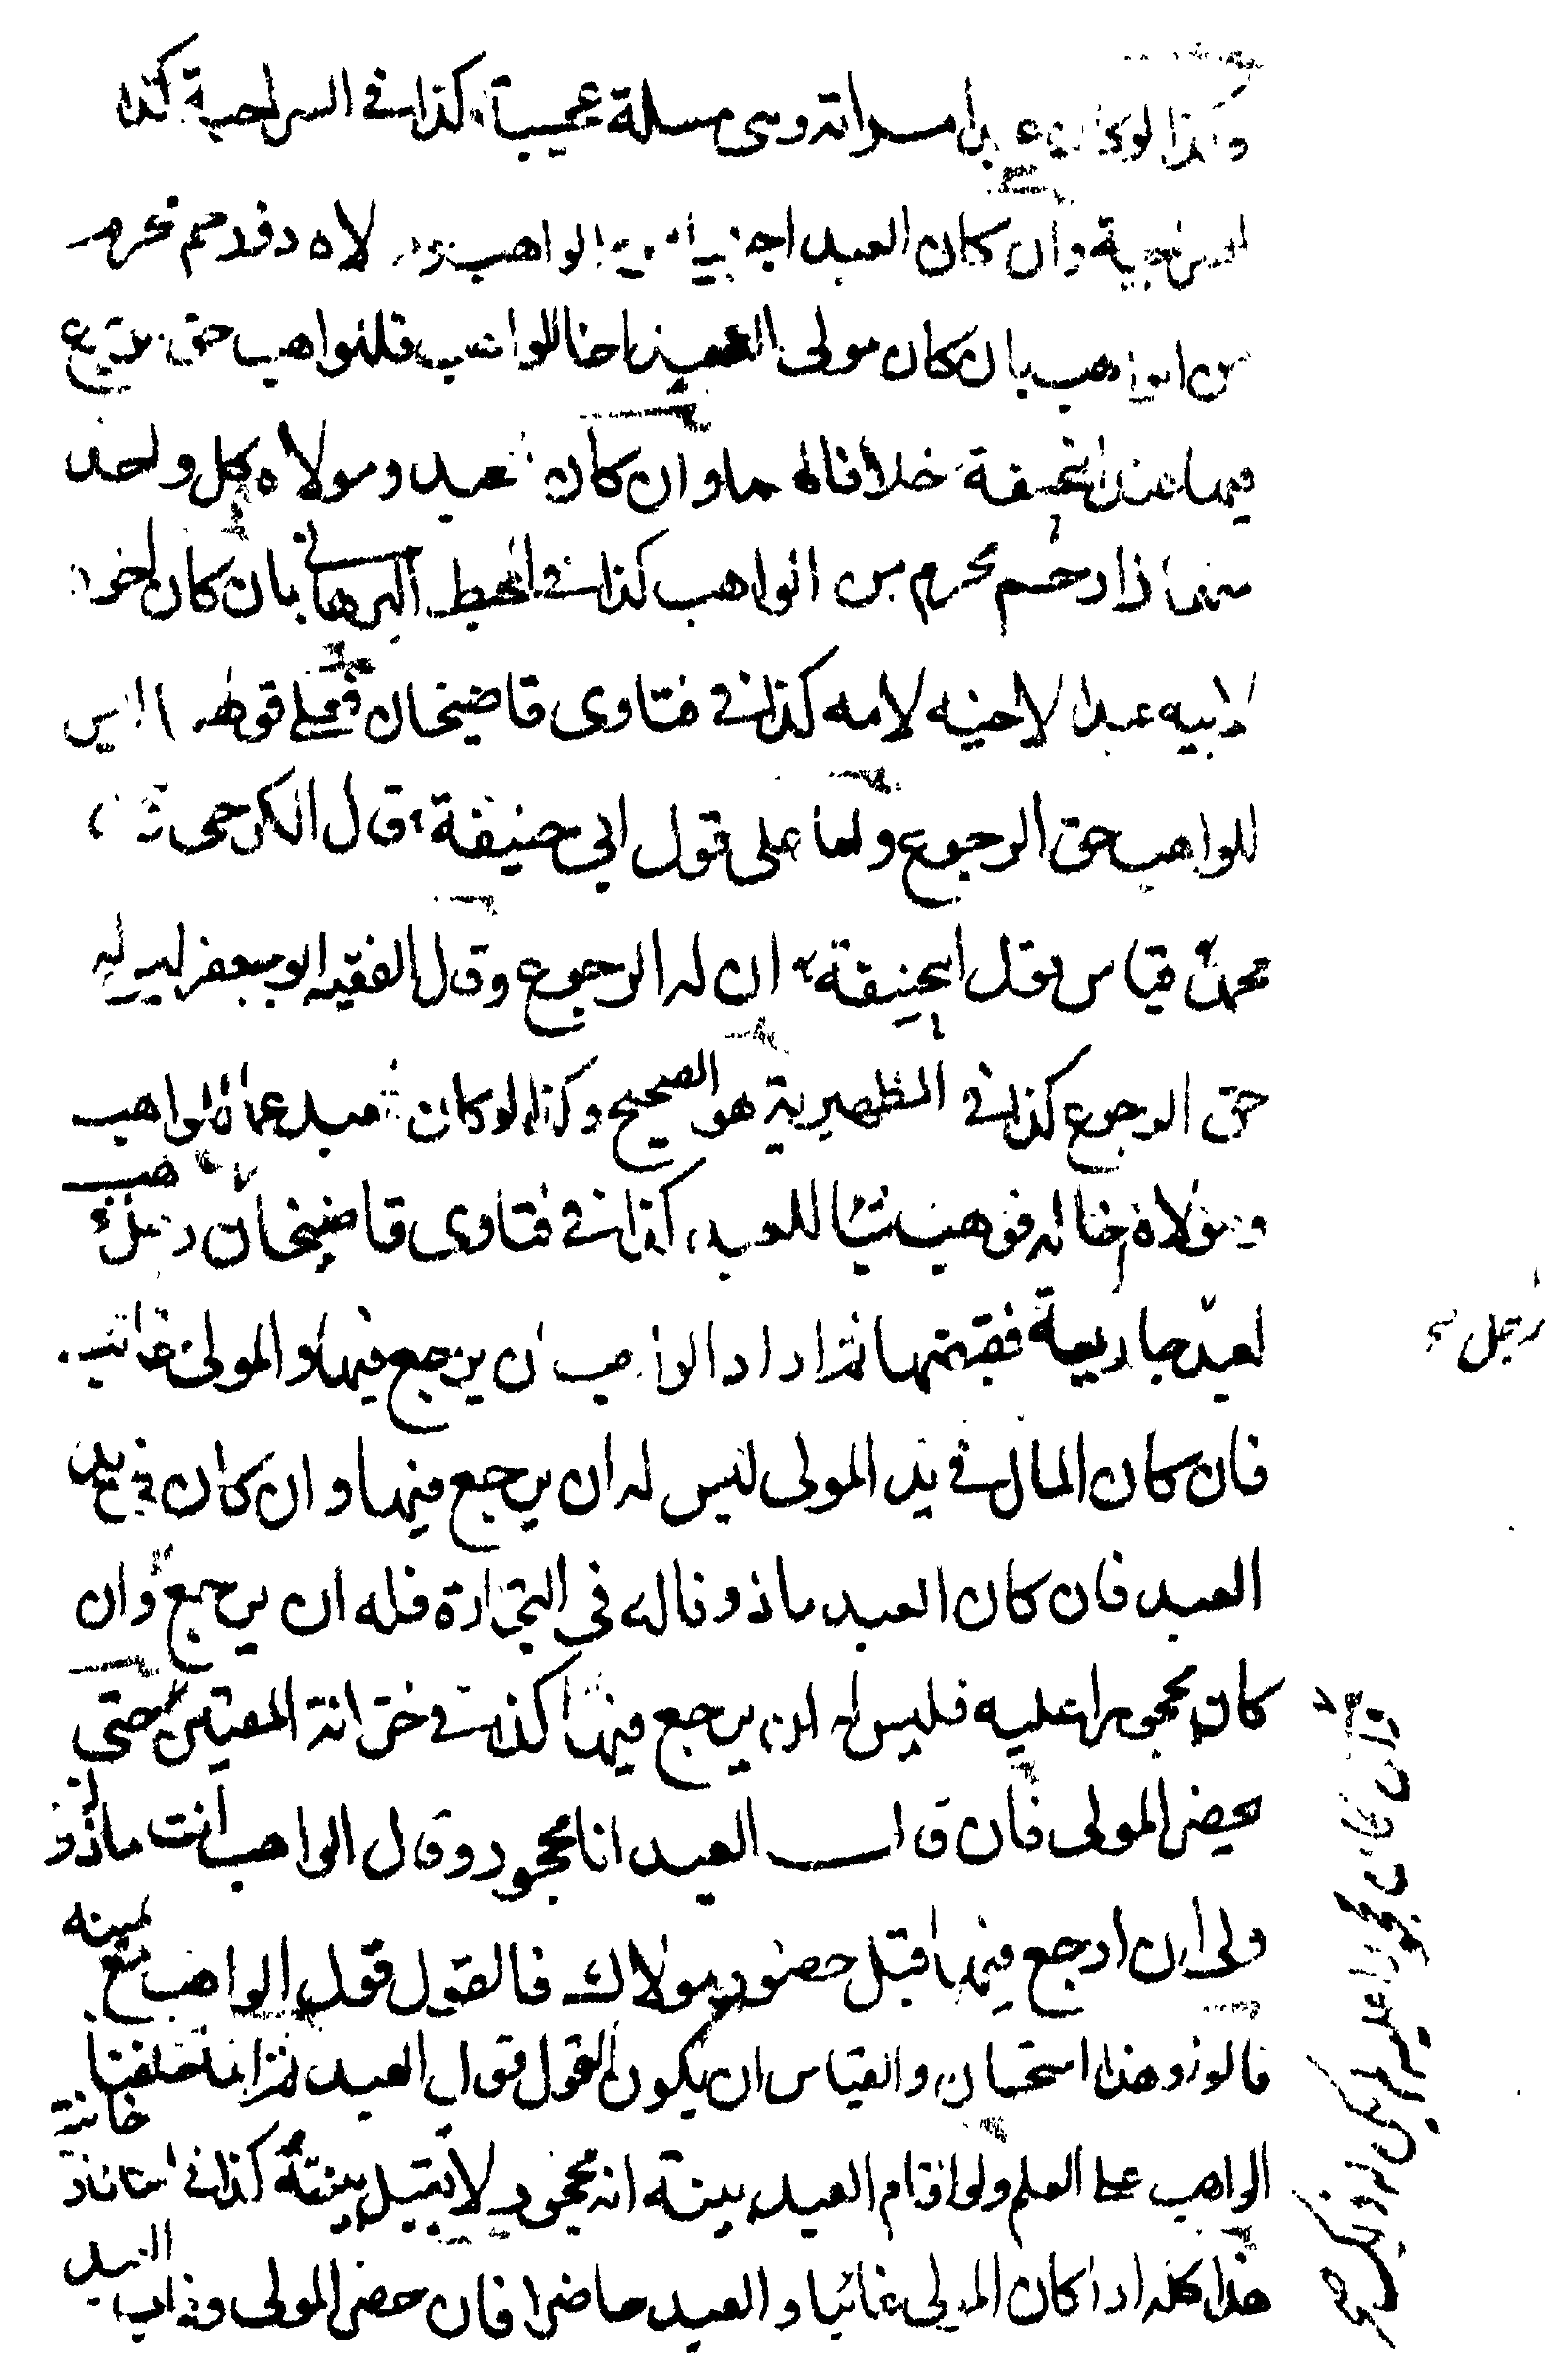 وكذا لو كان عبد امراته وهى مسلة عجيبة كذا في السراجية كذا
السراجية وان كان العبد اجنبيا من الواهب ومولاه ذو رحم محرم
من الواهب بان كان مولى العبد اخا للواهب فللواهب حق يرجع
فيها عند ابيحنيفة خلافا لهما وان كان العبد ومولاه كل واحد
منهما ذا رحم محرم من الواهب كذا في المحيط البرهاني بان كان اخوه
لابيه عبدا لاخيه لامه كذا في فتاوى قاضيخان فعلى قولهما ليس
للواهب حق الرجوع واما على قول ابي حنيفة قال الكرخى
محمد قياس قول ابيحنيفة ان له الرجوع وقال الفقيه ابو جعفر ليس له
حق الرجوع كذا في الظهيرية هو الصحيح وكذا لو كان العبد عما للواهب
ومولاه خاله فوهب شيئا للعبد كذا في فتاوى قاضيخان رجل وهب
لعبد جارية فقبضها ثم اراد الواهب ان يرجع فيها والمولى غائب
فان كان المال في يد المولى ليس له ان يرجع فيها وان كان في يد
العبد فان كان العبد ماذونا له في التجارة فله ان يرجع وان
كان محجورا عليه فليس له ان يرجع فيها كذا في خزانة المفتين حتى
يحضر المولى فان قال العبد انا محجور وقال الواهب انت ماذون
ولى ان ارجع فيها قبل حضور مولاك فالقول قول الواهب مع يمينه
قالوا وهذا استحسان والقياس ان يكون القول قول العبد ثم انما حلفنا
الواهب على العلم ولو اقام العبد بينة انه محجور لا يقبل بينته كذا في التاتارخانية
هذا كله اذا كان المولى غائبا والعبد حاضرا فان حضر المولى وغاب العبد
رجل
وان كان محجورا عليه